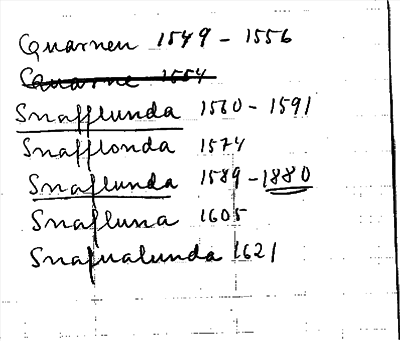 Quarnen 1549 - 1556
Quarne 1554
Snafflunda 1560 - 1591
Snafflonda 1574
Snaflunda 1589 - 1880
Snafluna 1605
Snafvalunda 1621